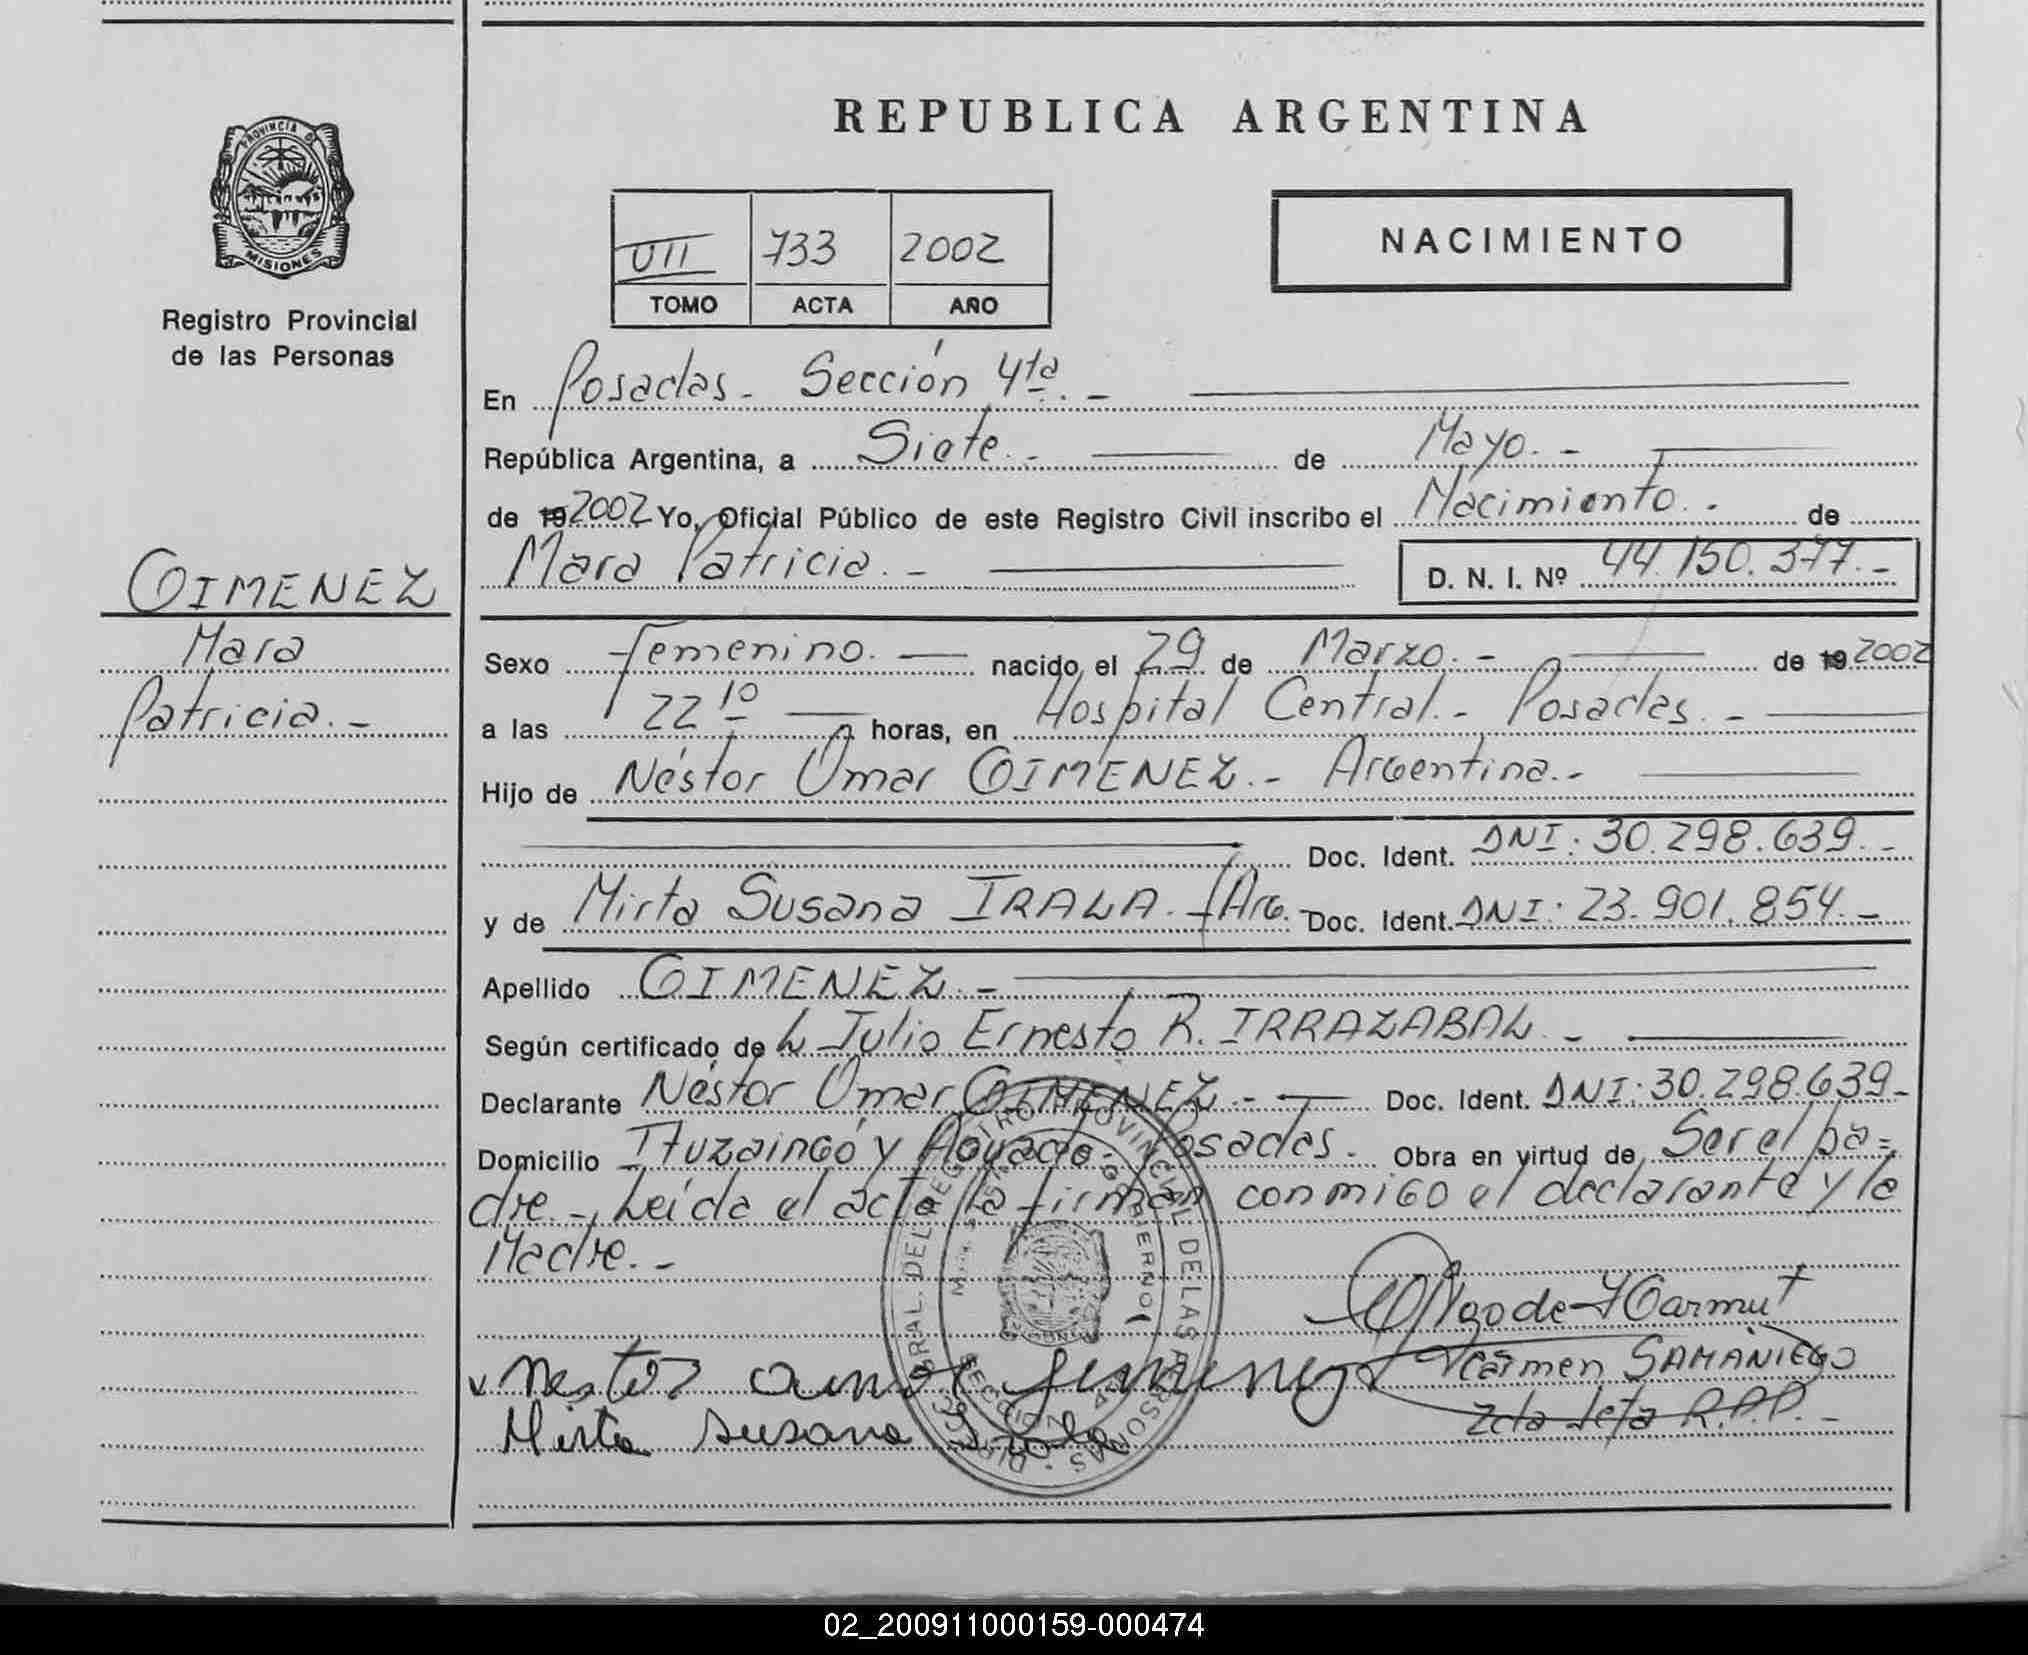 REPUBLICA ARGENTINA
PROVINCIA DE
MISIONES
Registro Provincial
de las Personas
VII 733 2002
TOMO ACTA AÑO
NACIMIENTO
En Posadas.- Sección 4ta.-
República Argentina, a Siete.- de Mayo.-
de 19 2002 Yo, Oficial Público de este Registro Civil inscribo el Nacimiento.- de
Mara Patricia.- D. N. I. Nº 44.150.377.-
GIMENEZ
Mara
Patricia.-
Sexo Femenino.- nacido el 29 de Marzo.- de 19 2002
a las 22 10 horas, en Hospital Central.- Posadas.-
Hijo de Néstor Omar GIMENEZ.- Argentina.-
Doc. Ident. DNI: 30.298.639.-
y de Mirta Susana IRALA.- Arg.- Doc. Ident. DNI: 23.901.854.-
Apellido GIMENEZ.-
Según certificado de Julio Ernesto R. IRRAZABAL.-
Declarante Néstor Omar GIMENEZ.- Doc. Ident. DNI: 30.298.639-
Domicilio Ituzaingó y Aguado- Posadas.- Obra en virtud de Ser el pa=
dre.- Leída el acta la firman conmigo el declarante y la
Madre.-
Carmen SAMANIEGO
2da Jefa R.P.P.-
Mirta Susana Irala
02_200911000159-000474